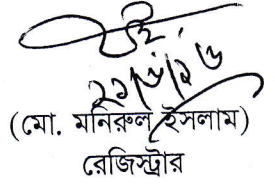 ২১/৮/২৩
(মো. মনিরুল ইসলাম)
রেজিস্ট্রার